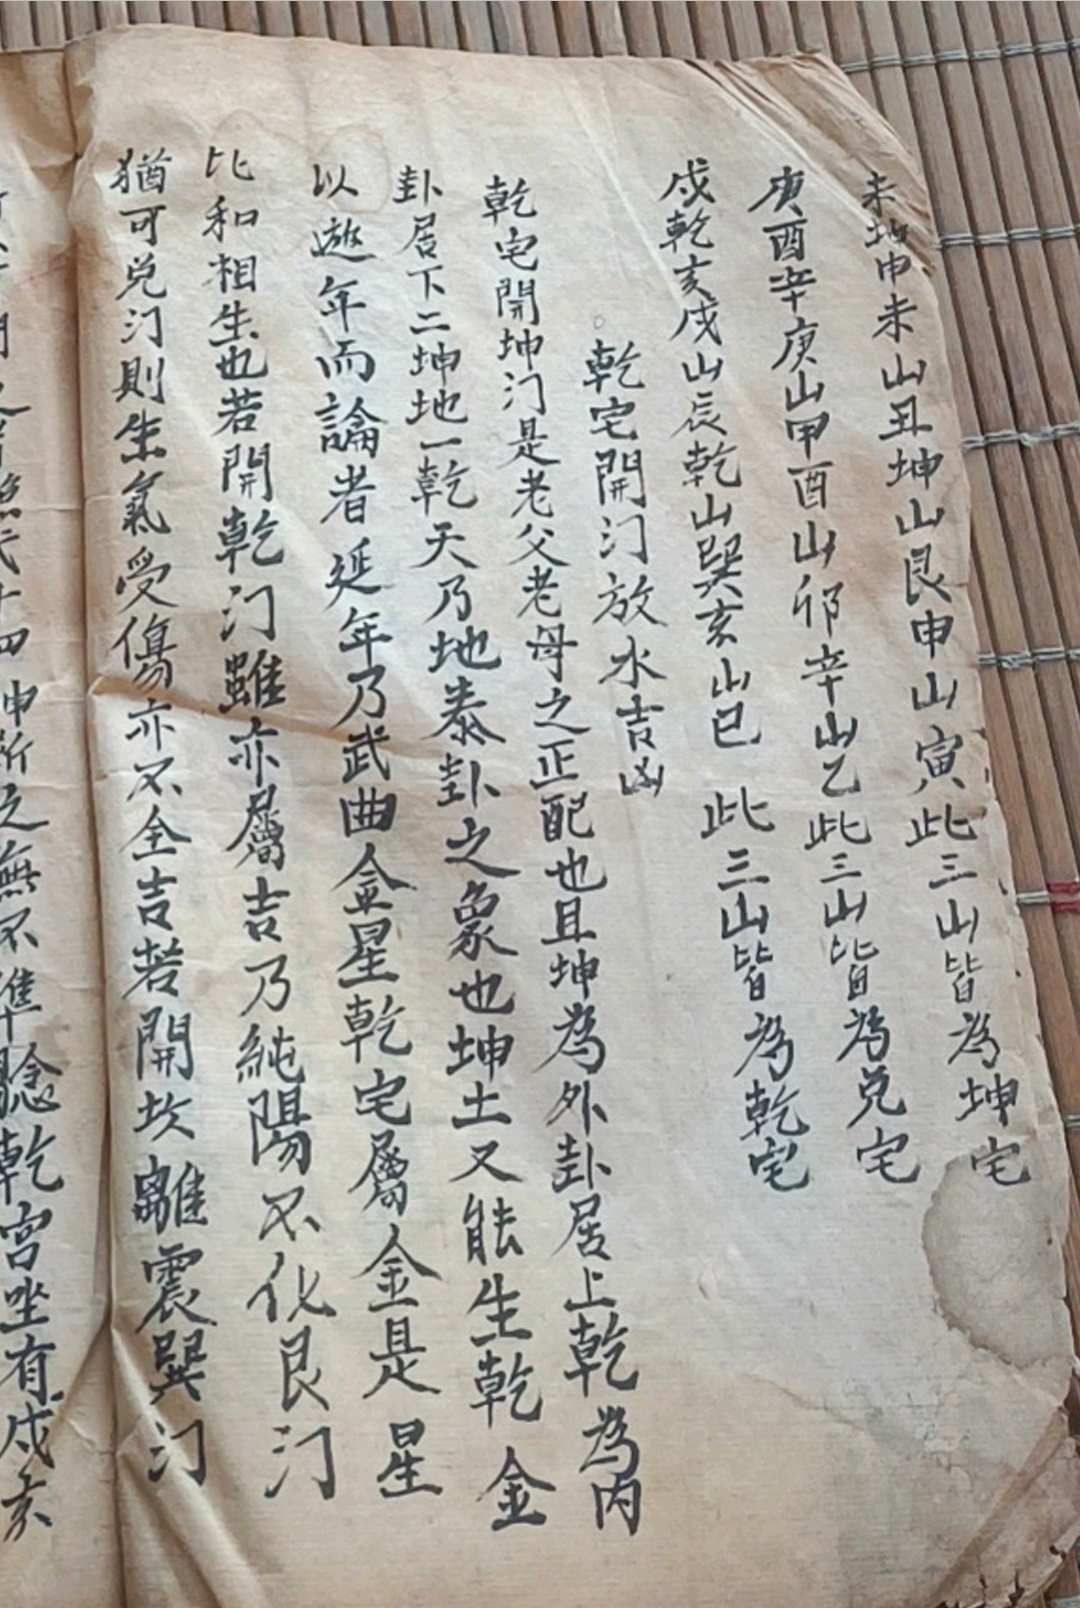 未坤申未山丑坤山艮申山寅此三山皆為坤宅
庚酉辛庚山甲酉山卯辛山乙此三山皆為兌宅
戌乾亥戌山辰乾山巽亥山巳此三山皆為乾宅
乾宅開门放水吉凶
乾宅開坤门是老父老母之正配也且坤為外卦居上乾為內
卦居下二坤地一乾天乃地泰卦之象也坤土又能生乾金
以遊年而論者延年乃武曲金星乾宅屬金是星
比和相生也若開乾门雖亦屬吉乃純陽不化艮门
猶可兌门則生氣受傷亦不全吉若開坎離震巽门
四坤所之無不準驗乾宮坐有戌亥